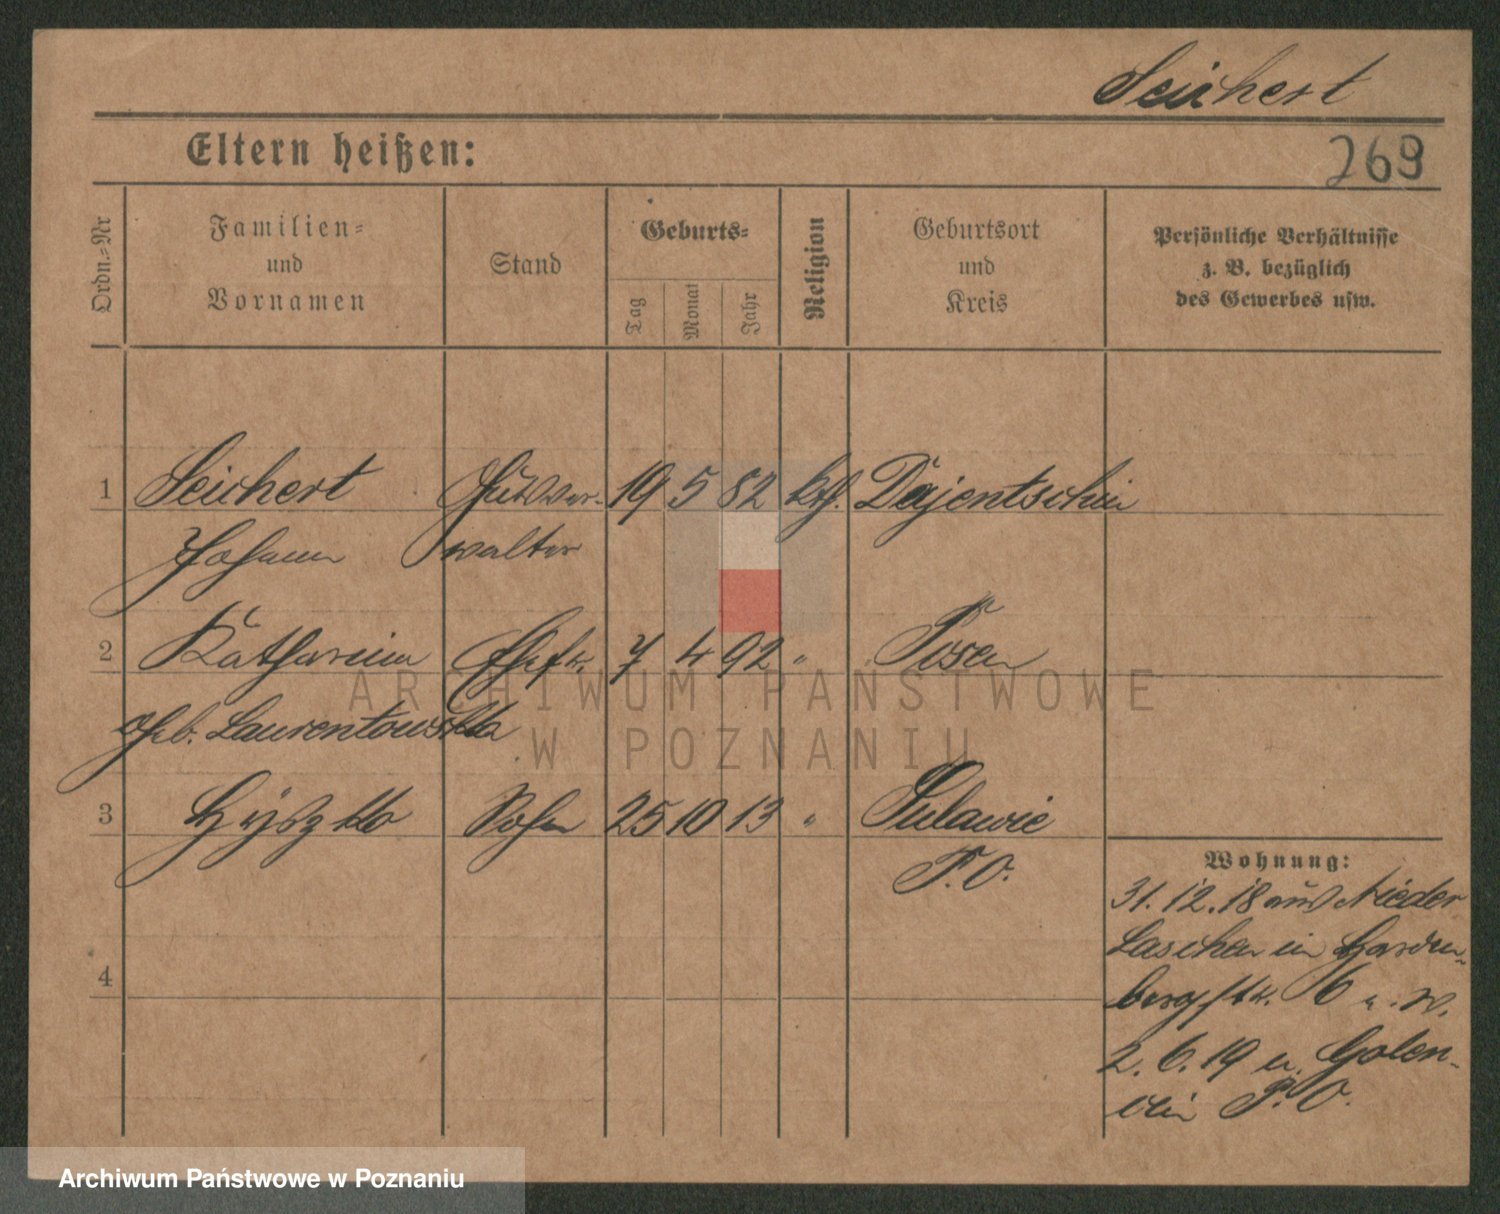 Seichert
Eltern heißen:
269
Ordn.-Nr
Familien-
und
Vornamen
Stand
Geburts-
Tag
Monat
Jahr
Religion
Geburtsort
und
Kreis
Persönliche Verhältnisse
z. B. bezüglich
des Gewerbes usw.
1 Seichert Gutsver- 19 5 82 kth.
Johann walter
2 Katharina Ehefr. 7 4 92 " Posen
geb. Laurentowska
3 Sohn 25 10 13 " Pulawie
P. O.
4
Wohnung:
31.12.18 aus Nieder
Laschen in Harden-
bergstr. 6
2.6.19 n. Golen-
P. O.
ARCHIWUM PAŃSTWOWE
W POZNANIU
Archiwum Państwowe w Poznaniu